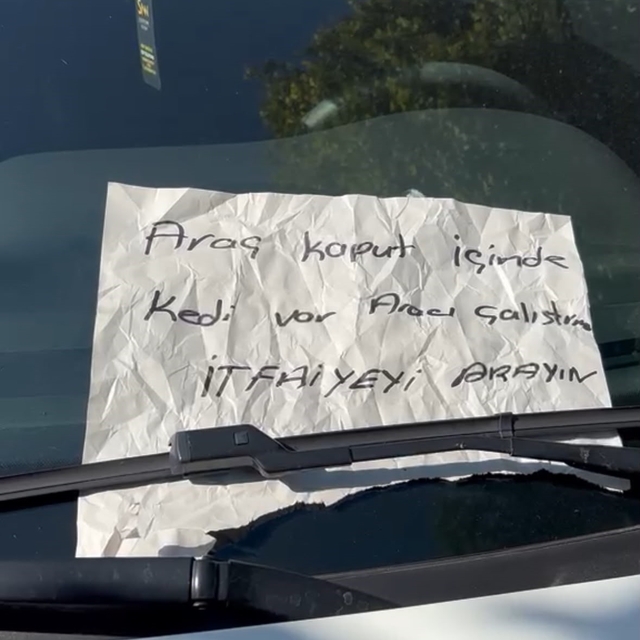 Araç kaput içinde
Kedi var Aracı çalıştırma
İTFAİYEYİ ARAYIN